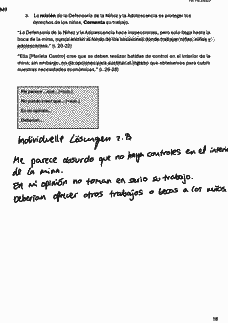 3. La misión de la Defensoría de la Niñez y la Adolescencia es proteger los
derechos de los niños. Comenta su trabajo.
"La Defensoría de la Niñez y la Adolescencia hace inspecciones, pero solo llega hasta la
boca de la mina, nunca entran al fondo de los socavones donde trabajan niños, niñas y
adolescentes." (l. 20-22)
"Ella [Mariela Castro] cree que se deben realizar batidas de control en el interior de la
mina; sin embargo, no da opciones para sustituir el ingreso que obtenemos para cubrir
nuestras necesidades económicas." (l. 26-28)
Me parece ... que ... (+sub.)
No puedo creer que... (+sub.)
En mi opinión...
Deberían...
Individuelle Lösungen z.B
Me parece absurdo que no haya controles en el interi
de la mina.
En mi opinión no toman en serio su trabajo.
Deberían ofrecer otros trabajos o becas a los niños.
18